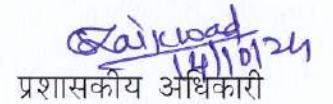 Gaikwad
14/10/24
प्रशासकीय अधिकारी